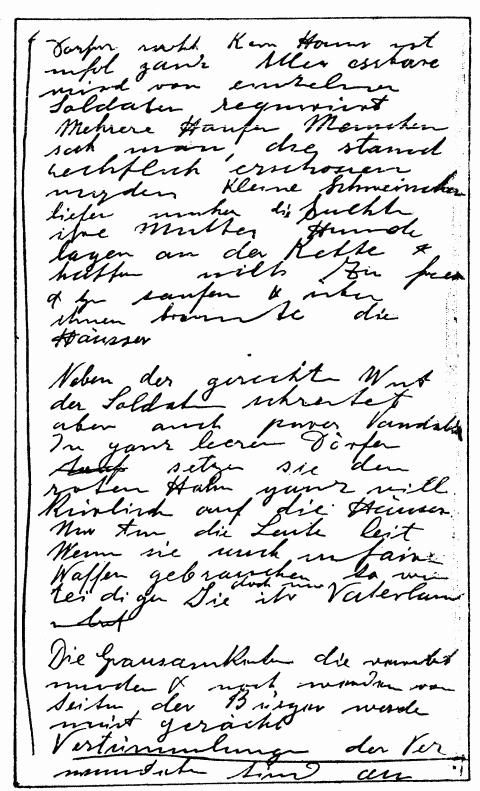 Dorfer nicht Kein Haus ist
ganz Alles essbare
wird von einzelnen
Soldaten requirirt
Mehrere Haufen Menschen
sah man, die stand
rechtlich erschossen
wurden Kleine Schweinchen
liefen umher die suchten
ihre Mutter Hunde
lagen an der Kette &
hatten nichts zu fres
& zu saufen & über
ihnen brannte die
Häusser
Neben der gerechten Wut
der Soldaten schreitet
aber auch purer Vandalis
In ganz leeren Dörfer
setzen sie den
roten Hahn ganz will
kürlich auf die Häuser
Mir tun die Leute leit
Wenn sie auch unfaire
Waffen gebrauchen so ver
teidigen Sie doch nur ihr Vaterlan
Die Grausamkeiten die verübt
wurden & noch werden von
seiten der Bürger werde
wüst gerächt
Verstümmlungen der Ver
wundeten sind an